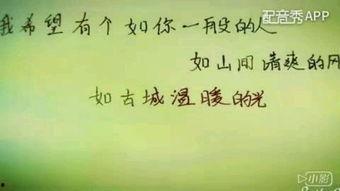 配音秀APP
我希望有个如你一般的人
如山间清爽的风
如古城温暖的光
小影